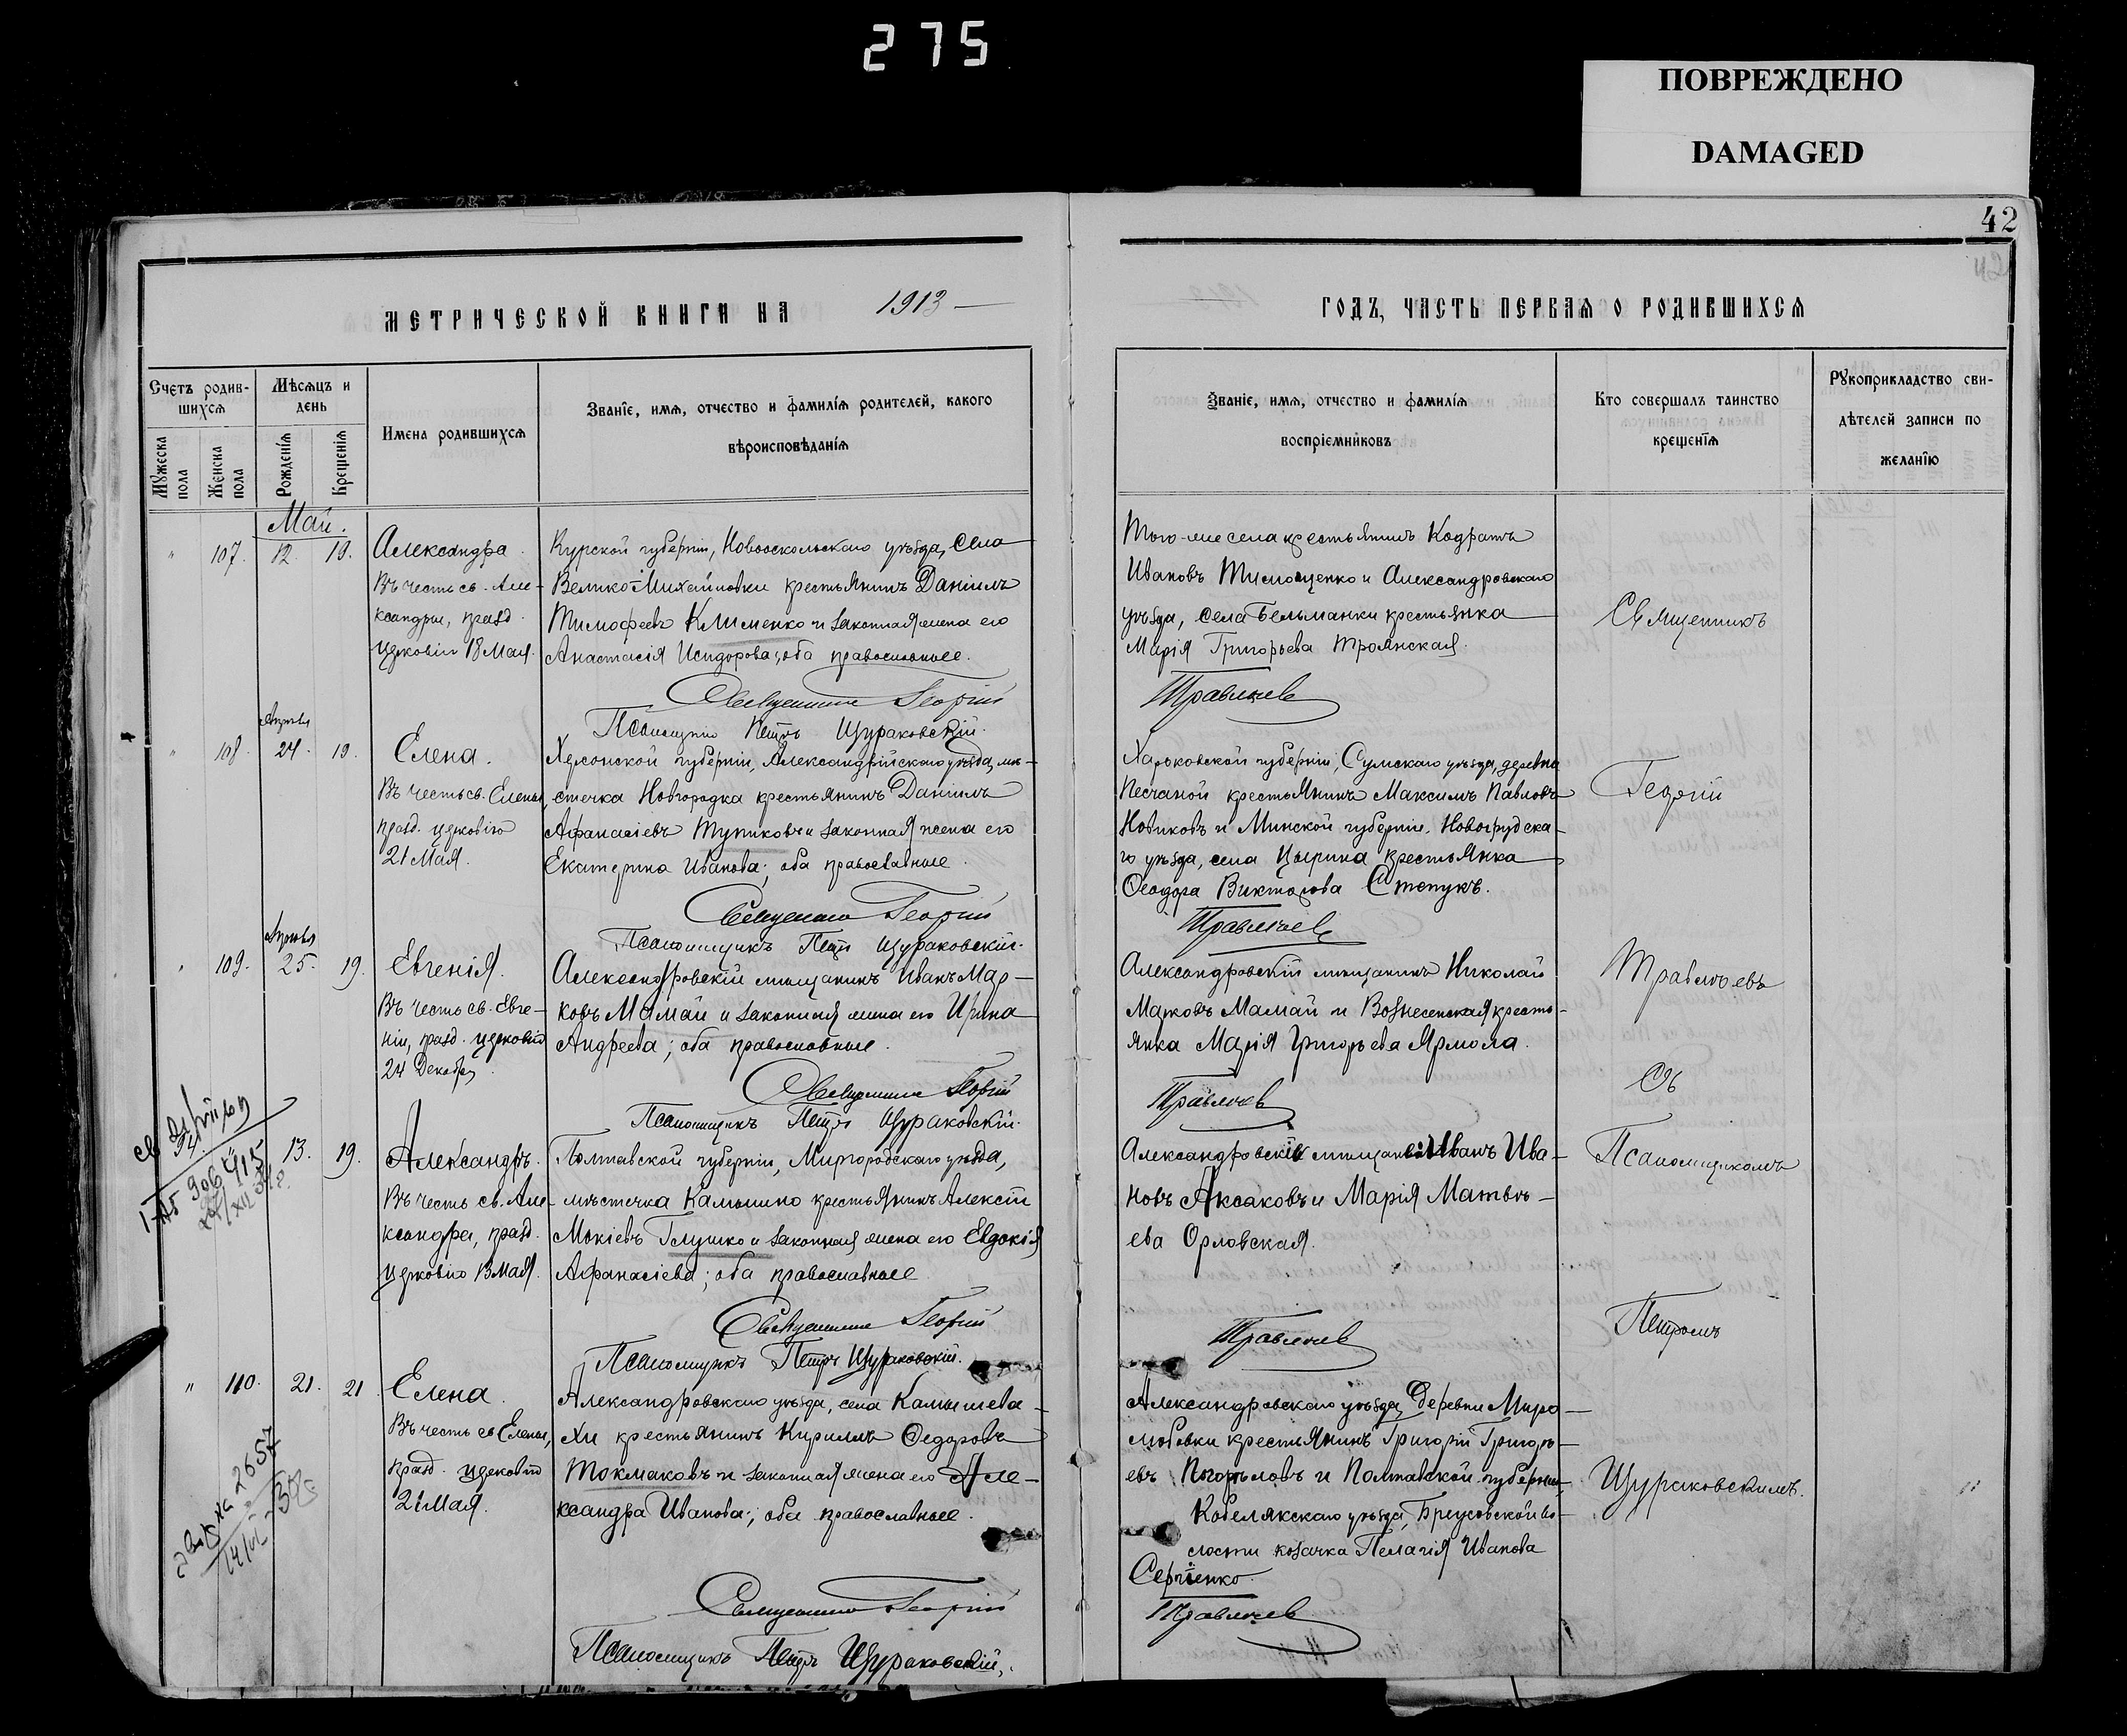 275
ПОВРЕЖДЕНО
DAMAGED
42
МЕТРИЧЕСКОЙ КНИГИ НА 1913
ГОДЪ, ЧАСТЬ ПЕРВАЯ О РОДИВШИХСЯ
Счетъ родив-
шихся
Мѣсяцъ и
день
Мужеска
пола
Женска
пола
Рожденія
Крещенія
Имена родившихся
Званіе, имя, отчество и фамилія родителей, какого
вѣроисповѣданія
Званіе, имя, отчество и фамилія
воспріемниковъ
Кто совершалъ таинство
крещенія
Рукоприкладство сви-
дѣтелей записи по
желанію
Май.
" 107. 12. 19.
Александра.
Въ честь св. Але-
ксандры, празд.
церковію 18 Мая.
Курской губерніи, Новооскольскаго уѣзда, села
Велико-Михайловки крестьянинъ Даніилъ
Тимофеевъ Клименко и законная жена его
Анастасія Исидорова; оба православные.
Священникъ Георгій
Псаломщикъ Петръ Щураковскій.
Того-же села крестьянинъ Кодратъ
Ивановъ Тимощенко и Александровскаго
уѣзда, села Бельманки крестьянка
Марія Григорьева Троянская.
Правлоевъ
" 108. Апрѣля 24. 19.
Елена.
Въ честь св. Елены,
празд. церковію
21 Мая.
Херсонской губерніи, Александрійскаго уѣзда, мѣ-
стечка Новгородка крестьянинъ Даніилъ
Афанасіевъ Тупиковъ и законная жена его
Екатерина Иванова; оба православные.
Священникъ Георгій
Псаломщикъ Петръ Щураковскій.
Харьковской губерніи, Сумскаго уѣзда, деревни
Песчаной крестьянинъ Максимъ Павловъ
Новиковъ и Минской губерніи, Новогрудска-
го уѣзда, села Цырина крестьянка
Ѳеодора Викторова Степукъ.
" 109. Апрѣля 25. 19.
Евгенія.
Въ честь св. Евге-
ніи, празд. церковію
24 Декабря.
Александровскій мѣщанинъ Иванъ Мар-
ковъ Мамай и законная жена его Ирина
Андреева; оба православные.
Священникъ Георгій
Псаломщикъ Петръ Щураковскій.
Александровскій мѣщанинъ Николай
Марковъ Мамай и Вознесенская кресть-
янка Марія Григорьева Ярмола.
13. 19.
Александръ.
Въ честь св. Але-
ксандра, празд.
церковію 13 Мая.
Полтавской губерніи, Миргородскаго уѣзда,
мѣстечка Камышно крестьянинъ Алексій
Мокіевъ Глушко и законная жена его Евдокія
Афанасіева; оба православные
Священникъ Георгій
Псаломщикъ Петръ Щураковскій.
Александровскій мѣщанинъ Иванъ Ива-
новъ Аксаковъ и Марія Матвѣ-
ева Орловская.
" 110. 21. 21.
Елена.
Въ честь св. Елены,
празд. церковію
21 Мая.
Александровскаго уѣзда, села Камышева-
хи крестьянинъ Кириллъ Ѳедоровъ
Токмаковъ и законная жена его Але-
ксандра Иванова; оба православные.
Священникъ Георгій
Псаломщикъ Петръ Щураковскій.
Александровскаго уѣзда, деревни Миро-
любовки крестьянинъ Григорій Григорь-
евъ Погорѣловъ и Полтавской губерніи,
Кобелякскаго уѣзда, Бреусовской во-
лости козачка Пелагія Иванова
Сергіенко.
Священникъ
Георгій
Съ
Псаломщикомъ
Петромъ
Щураковскимъ.